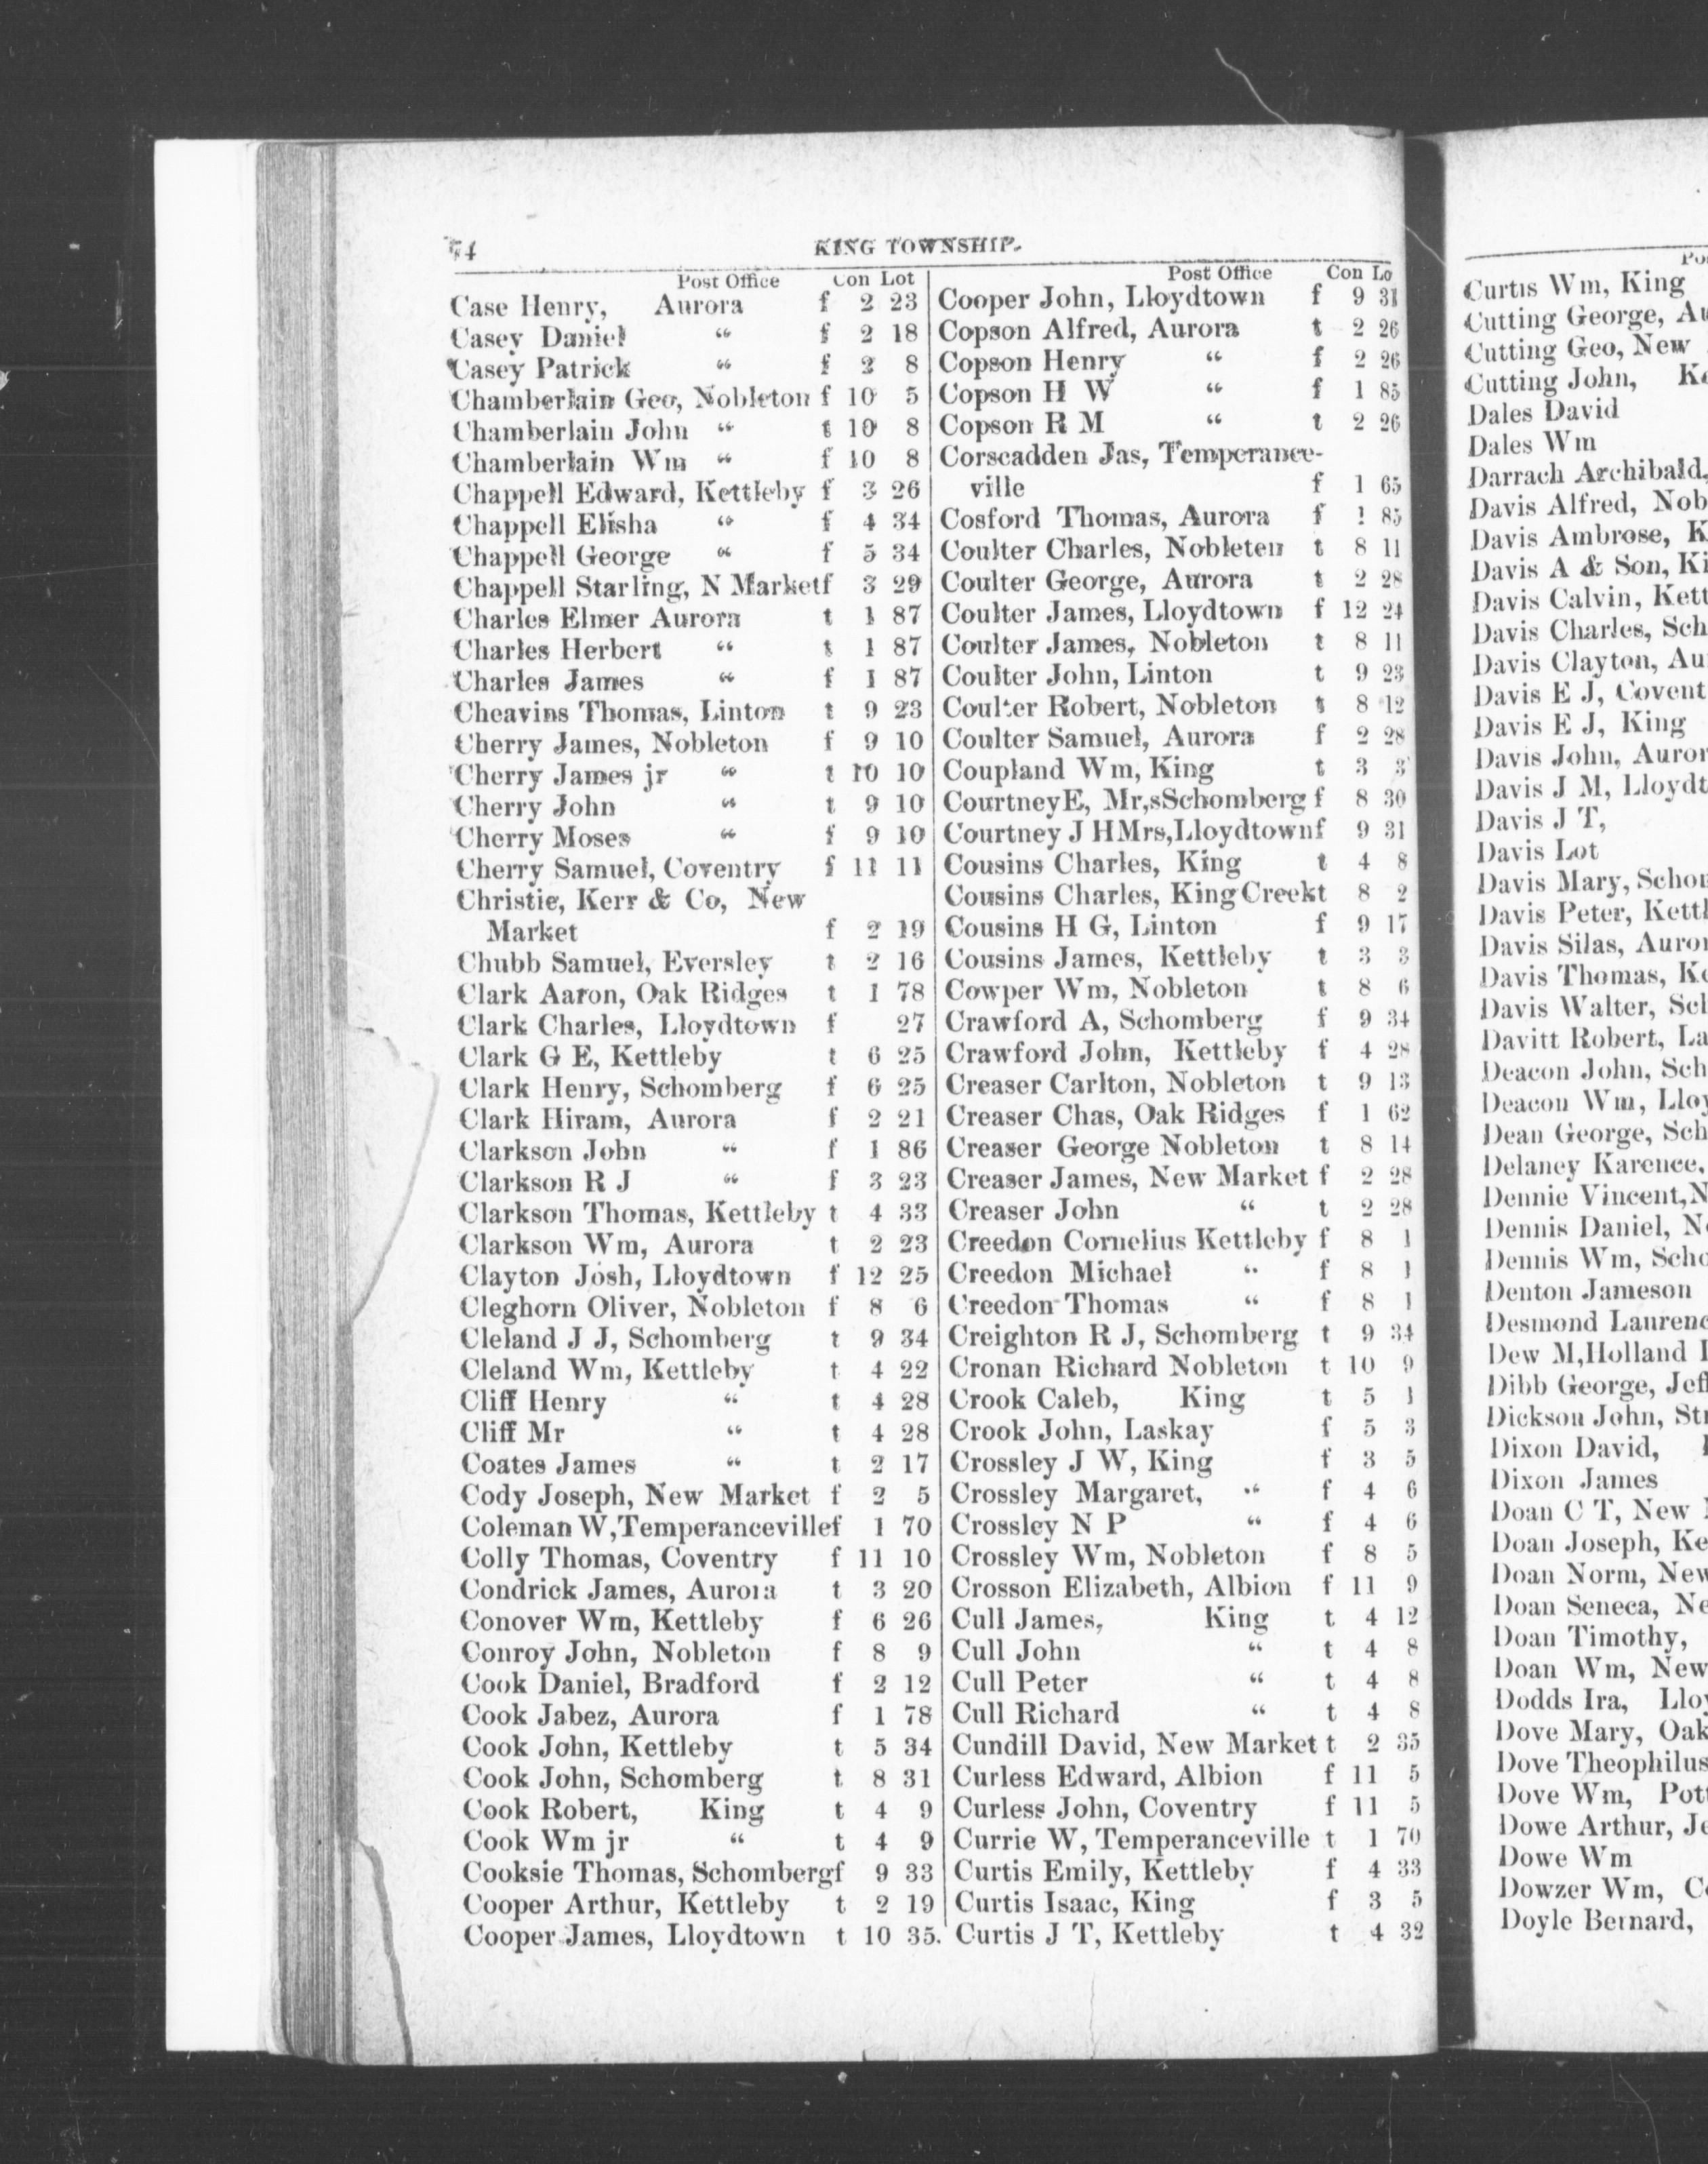 74
KING TOWNSHIP.
Post Office Con Lot
Case Henry, Aurora f 2 23
Casey Daniel “ f 2 18
Casey Patrick “ f 2 8
Chamberlain Geo, Nobleton f 10 5
Chamberlain John “ t 10 8
Chamberlain Wm “ f 10 8
Chappell Edward, Kettleby f 3 26
Chappell Elisha “ f 4 34
Chappell George “ f 5 34
Chappell Starling, N Marketf 3 29
Charles Elmer Aurora t 1 87
Charles Herbert “ t 1 87
Charles James “ f 1 87
Cheavins Thomas, Linton t 9 23
Cherry James, Nobleton f 9 10
Cherry James jr “ t 10 10
Cherry John “ t 9 10
Cherry Moses “ f 9 10
Cherry Samuel, Coventry f 11 11
Christie, Kerr & Co, New
Market f 2 19
Chubb Samuel, Eversley t 2 16
Clark Aaron, Oak Ridges t 1 78
Clark Charles, Lloydtown f 27
Clark G E, Kettleby t 6 25
Clark Henry, Schomberg f 6 25
Clark Hiram, Aurora f 2 21
Clarkson John “ f 1 86
Clarkson R J “ f 3 23
Clarkson Thomas, Kettleby t 4 33
Clarkson Wm, Aurora t 2 23
Clayton Josh, Lloydtown f 12 25
Cleghorn Oliver, Nobleton f 8 6
Cleland J J, Schomberg t 9 34
Cleland Wm, Kettleby t 4 22
Cliff Henry “ t 4 28
Cliff Mr “ t 4 28
Coates James “ t 2 17
Cody Joseph, New Market f 2 5
Coleman W,Temperancevillef 1 70
Colly Thomas, Coventry f 11 10
Condrick James, Aurora t 3 20
Conover Wm, Kettleby f 6 26
Conroy John, Nobleton f 8 9
Cook Daniel, Bradford f 2 12
Cook Jabez, Aurora f 1 78
Cook John, Kettleby t 5 34
Cook John, Schomberg t 8 31
Cook Robert, King t 4 9
Cook Wm jr “ t 4 9
Cooksie Thomas, Schombergf 9 33
Cooper Arthur, Kettleby t 2 19
Cooper James, Lloydtown t 10 35.
Post Office Con Lo
Cooper John, Lloydtown f 9 31
Copson Alfred, Aurora t 2 26
Copson Henry “ f 2 26
Copson H W “ f 1 85
Copson R M “ t 2 26
Corscadden Jas, Temperance-
ville f 1 65
Cosford Thomas, Aurora f 1 85
Coulter Charles, Nobleten t 8 11
Coulter George, Aurora t 2 28
Coulter James, Lloydtown f 12 24
Coulter James, Nobleton t 8 11
Coulter John, Linton t 9 23
Coulter Robert, Nobleton t 8 12
Coulter Samuel, Aurora f 2 28
Coupland Wm, King t 3 3
CourtneyE, Mr,sSchomberg f 8 30
Courtney J HMrs,Lloydtownf 9 31
Cousins Charles, King t 4 8
Cousins Charles, King Creekt 8 2
Cousins H G, Linton f 9 17
Cousins James, Kettleby t 3 3
Cowper Wm, Nobleton t 8 6
Crawford A, Schomberg f 9 34
Crawford John, Kettleby f 4 28
Creaser Carlton, Nobleton t 9 13
Creaser Chas, Oak Ridges f 1 62
Creaser George Nobleton t 8 14
Creaser James, New Market f 2 28
Creaser John “ t 2 28
Creedon Cornelius Kettleby f 8 1
Creedon Michael “ f 8 1
Creedon Thomas “ f 8 1
Creighton R J, Schomberg t 9 34
Cronan Richard Nobleton t 10 9
Crook Caleb, King t 5 1
Crook John, Laskay f 5 3
Crossley J W, King f 3 5
Crossley Margaret, “ f 4 6
Crossley N P “ f 4 6
Crossley Wm, Nobleton f 8 5
Crosson Elizabeth, Albion f 11 9
Cull James, King t 4 12
Cull John “ t 4 8
Cull Peter “ t 4 8
Cull Richard “ t 4 8
Cundill David, New Market t 2 35
Curless Edward, Albion f 11 5
Curless John, Coventry f 11 5
Currie W, Temperanceville t 1 70
Curtis Emily, Kettleby f 4 33
Curtis Isaac, King f 3 5
Curtis J T, Kettleby t 4 32
Curtis Wm, King
Cutting George, Au
Cutting Geo, New
Cutting John, Ke
Dales David
Dales Wm
Darrach Archibald,
Davis Alfred, Nob
Davis Ambrose, K
Davis A & Son, Ki
Davis Calvin, Kett
Davis Charles, Sch
Davis Clayton, Au
Davis E J, Covent
Davis E J, King
Davis John, Auror
Davis J M, Lloydt
Davis J T,
Davis Lot
Davis Mary, Schom
Davis Peter, Kettl
Davis Silas, Auror
Davis Thomas, Ke
Davis Walter, Sch
Davitt Robert, La
Deacon John, Sch
Deacon Wm, Lloy
Dean George, Sch
Delaney Karence,
Dennie Vincent,N
Dennis Daniel, No
Dennis Wm, Scho
Denton Jameson
Desmond Laurenc
Dew M,Holland L
Dibb George, Jeff
Dickson John, Str
Dixon David,
Dixon James
Doan C T, New
Doan Joseph, Ke
Doan Norm, New
Doan Seneca, Ne
Doan Timothy,
Doan Wm, New
Dodds Ira, Lloy
Dove Mary, Oak
Dove Theophilus
Dove Wm, Pott
Dowe Arthur, Je
Dowe Wm
Dowzer Wm, Co
Doyle Bernard,